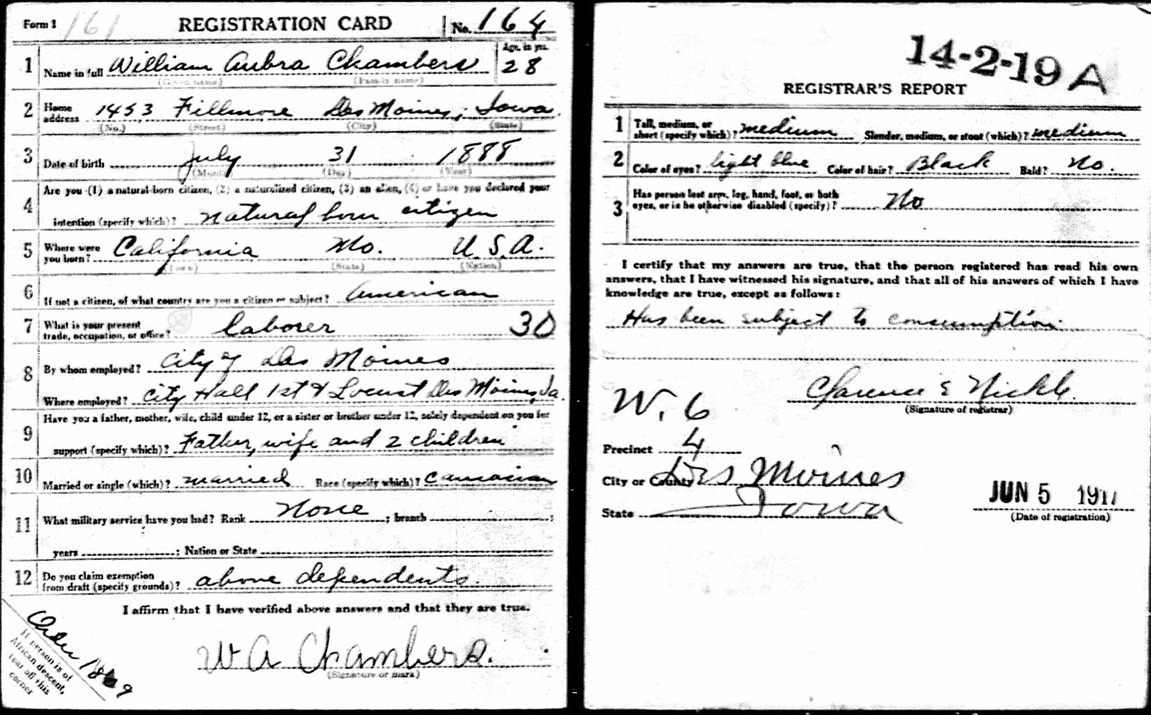 Form 1 161 REGISTRATION CARD No. 164
1 Name in full William Aubra Chambers Age, in yrs. 28
(Given name) (Family name)
2 Home address 1453 Fillmore Des Moines, Iowa
(No.) (Street) (City) (State)
3 Date of birth July 31 1888
(Month) (Day) (Year)
Are you (1) a natural-born citizen, (2) a naturalized citizen, (3) an alien, (4) or have you declared your
4 intention (specify which)? natural born citizen
5 Where were you born? California Mo. U.S.A.
(Town) (State) (Nation)
6 If not a citizen, of what country are you a citizen or subject? American
7 What is your present trade, occupation, or office? laborer 30
8 By whom employed? City of Des Moines
Where employed? City Hall 1st & Locust Des Moines, Ia.
Have you a father, mother, wife, child under 12, or a sister or brother under 12, solely dependent on you for
9 support (specify which)? Father, wife and 2 children
10 Married or single (which)? married Race (specify which)? Caucasian
11 What military service have you had? Rank None ; branch ;
years ; Nation or State
12 Do you claim exemption from draft (specify grounds)? above dependents.
I affirm that I have verified above answers and that they are true.
W A Chambers.
(Signature or mark)
If person is of
African descent,
tear off this
corner
14-2-19 A
REGISTRAR'S REPORT
1 Tall, medium, or short (specify which)? medium Slender, medium, or stout (which)? medium
2 Color of eyes? light blue Color of hair? Black Bald? No.
3 Has person lost arm, leg, hand, foot, or both eyes, or is he otherwise disabled (specify)? No
I certify that my answers are true, that the person registered has read his own
answers, that I have witnessed his signature, and that all of his answers of which I have
knowledge are true, except as follows:
Has been subject to consumption.
Clarence E
(Signature of registrar)
W. 6
Precinct 4
City or County Des Moines
State Iowa
JUN 5 1917
(Date of registration)